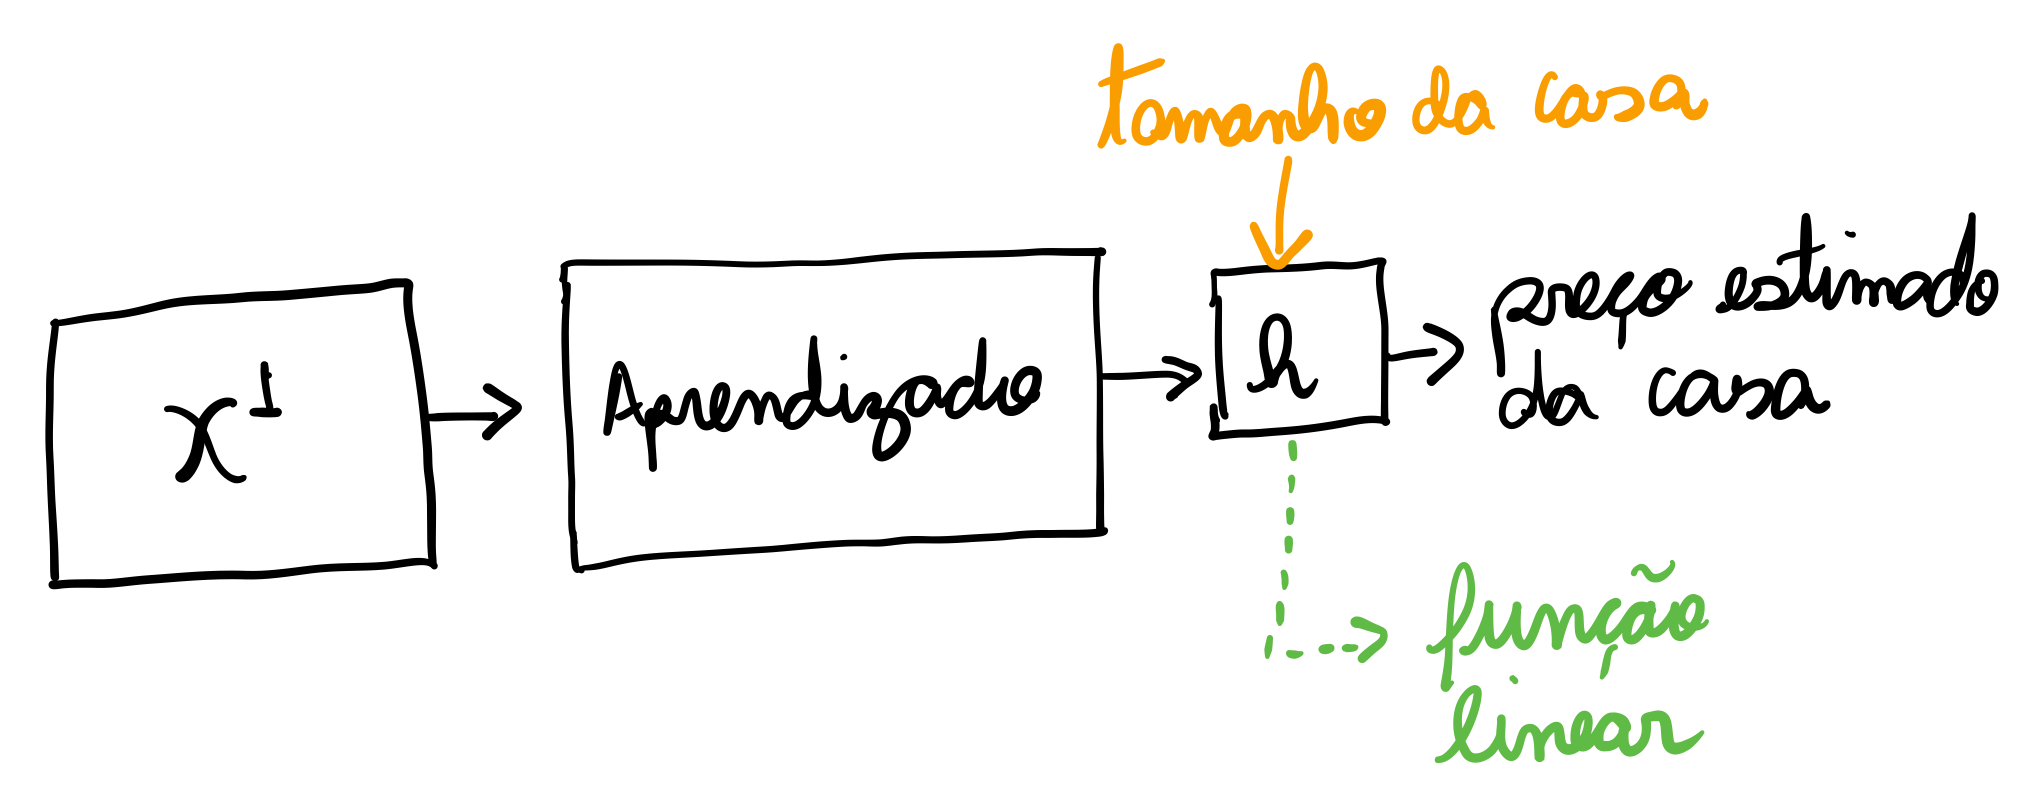 tamanho da casa
x¹
Aprendizado
h
preço estimado
da casa
função
linear